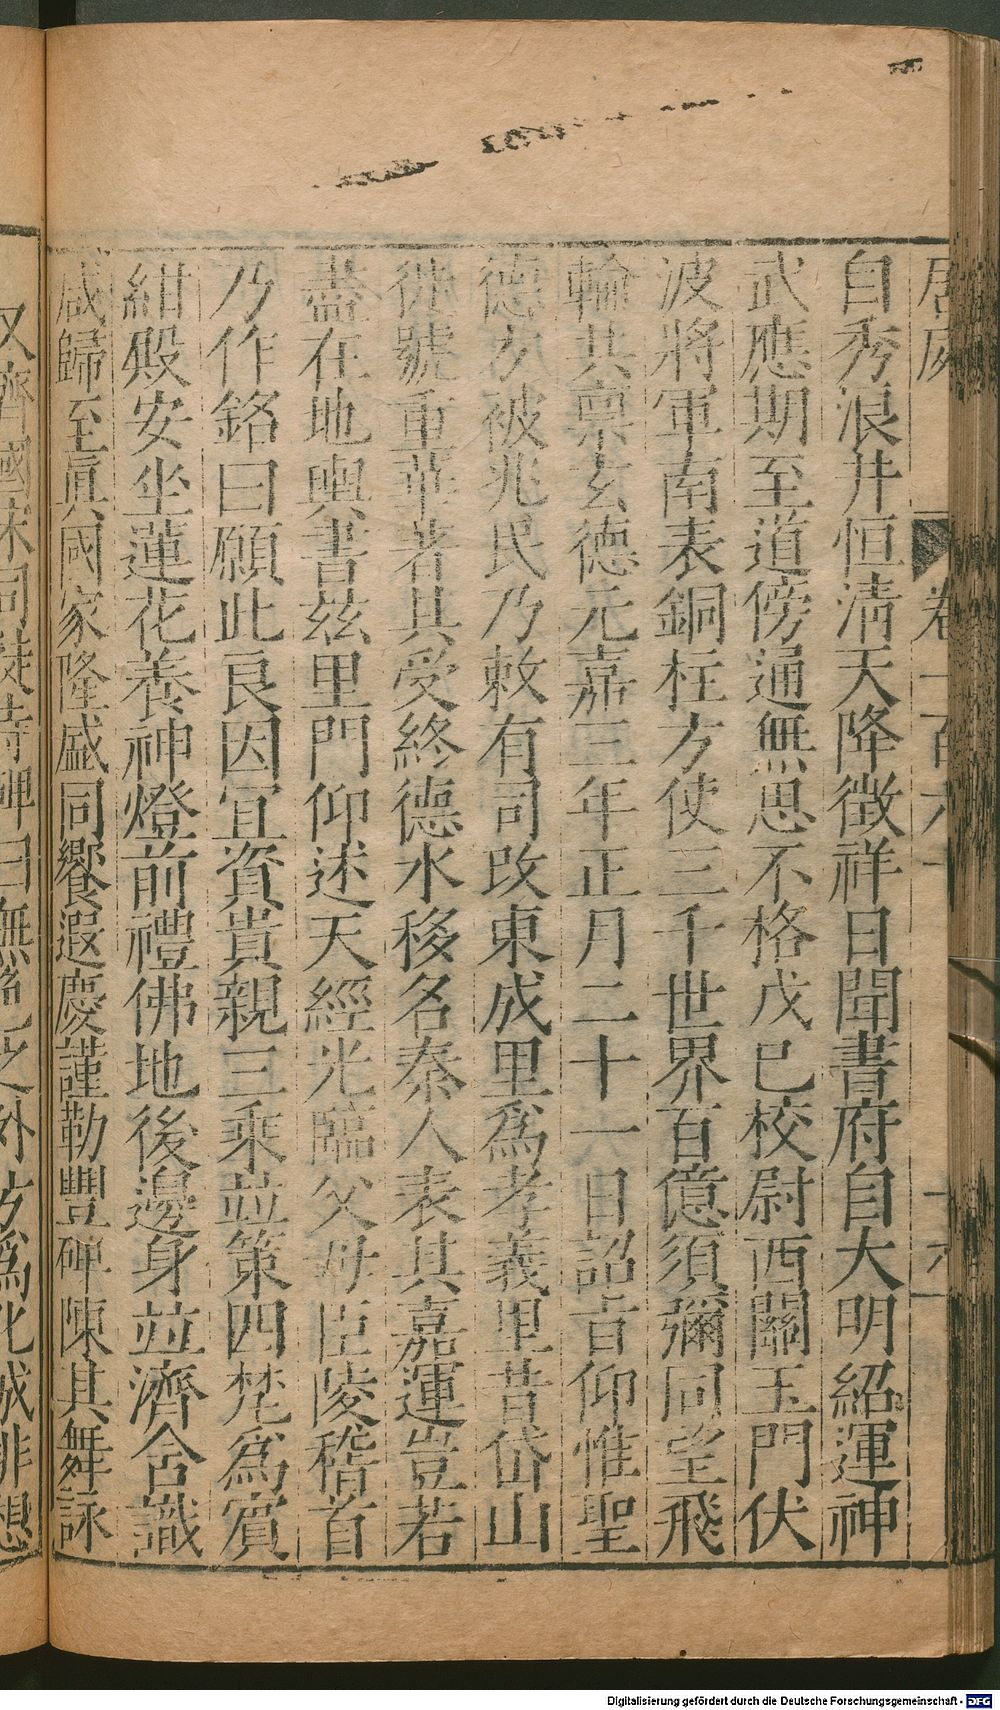 自秀浪井恒清天降徵祥日聞書府自大明紹運神
武應期至道傍通無思不格戊巳校尉西關玉門伏
波將軍南表銅柱方使三千世界百億須彌同望飛
輪共禀玄德元嘉三年正月二十一日詔旨仰惟聖
德方被兆民乃敕有司改東成里爲孝義里昔岱山
徙號重華著其受終德水移名秦人表其嘉運豈若
盡在地輿書兹里門仰述天經光臨父母臣陵稽首
乃作銘曰願此良因宜資貴親三乘並策四梵爲賓
紺殿安坐蓮花養神燈前禮佛地後邊身並濟含識
咸歸至眞國家隆盛同饗遐慶謹勒豐碑陳其舞詠
Digitalisierung gefördert durch die Deutsche Forschungsgemeinschaft - DFG